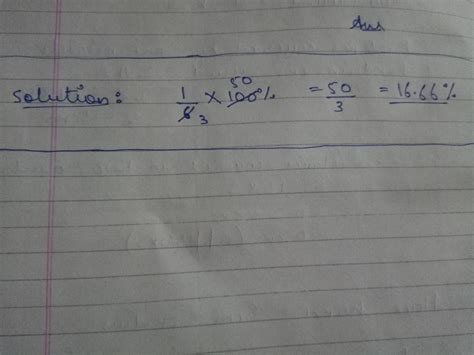 Ans
Solution: 1/6 3 × 100% 50 = 50/3 = 16.66%